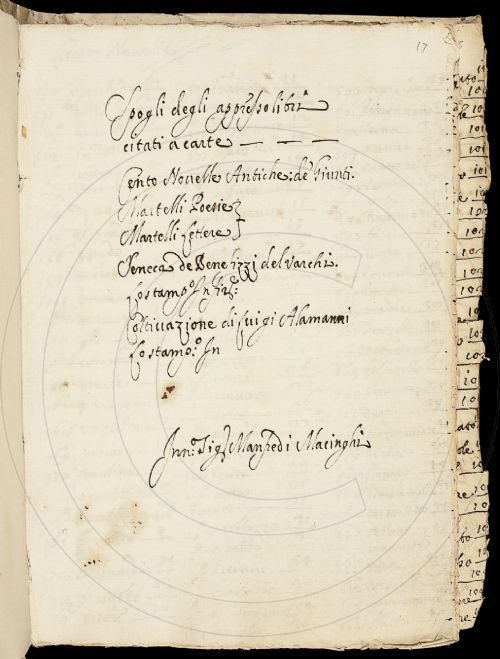 17
Spogli degli appresso libri
citati a carte — — —
Cento Novelle Antiche: de Giunti.
Martelli Poesie
Martelli Lettere
Seneca de Benefizzi del Varchi.
lo stamp.o In Fir.e:
Coltivazione di Luigi Alamanni
lo stamp.o: In
Sig.r Manfredi Macinghi